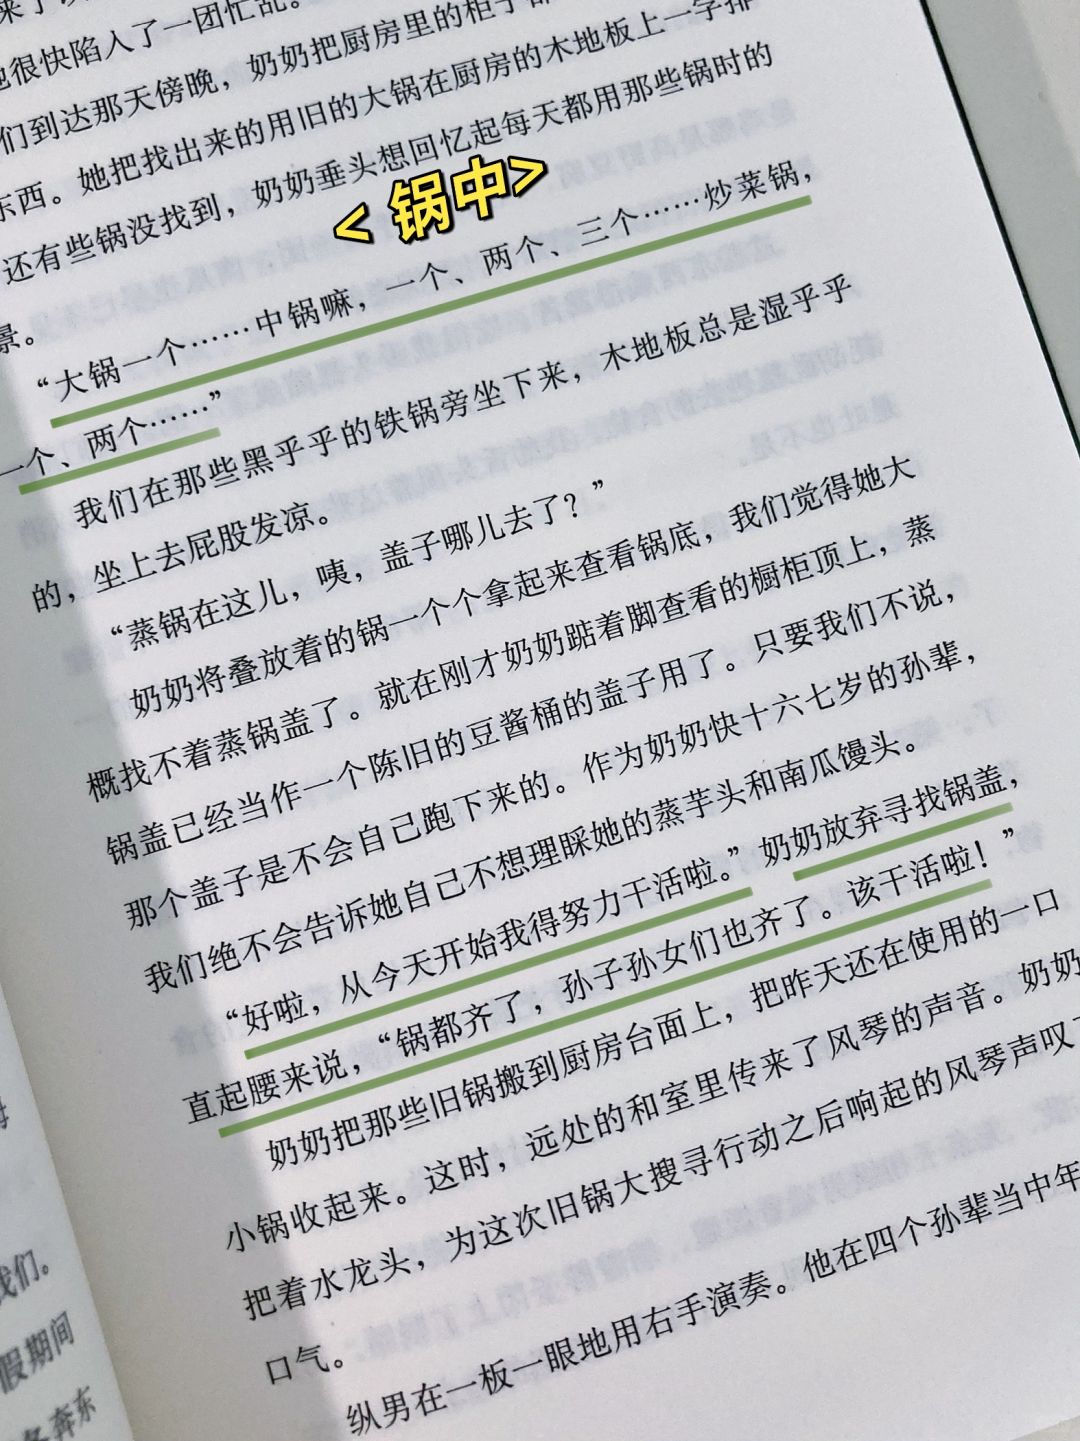 他很快陷入了一团忙乱。
们到达那天傍晚，奶奶把厨房里的柜子都
东西。她把找出来的用旧的大锅在厨房的木地板上一字排
还有些锅没找到，奶奶垂头想回忆起每天都用那些锅时的
景。
<锅中>
“大锅一个……中锅嘛，一个、两个、三个……炒菜锅，
一个、两个……”
我们在那些黑乎乎的铁锅旁坐下来，木地板总是湿乎乎
的，坐上去屁股发凉。
“蒸锅在这儿，咦，盖子哪儿去了？”
奶奶将叠放着的锅一个个拿起来查看锅底，我们觉得她大
概找不着蒸锅盖了。就在刚才奶奶踮着脚查看的橱柜顶上，蒸
锅盖已经当作一个陈旧的豆酱桶的盖子用了。只要我们不说，
那个盖子是不会自己跑下来的。作为奶奶快十六七岁的孙辈，
我们绝不会告诉她自己不想理睬她的蒸芋头和南瓜馒头。
“好啦，从今天开始我得努力干活啦。”奶奶放弃寻找锅盖，
直起腰来说，“锅都齐了，孙子孙女们也齐了。该干活啦！”
奶奶把那些旧锅搬到厨房台面上，把昨天还在使用的一口
小锅收起来。这时，远处的和室里传来了风琴的声音。奶奶
把着水龙头，为这次旧锅大搜寻行动之后响起的风琴声叹了
口气。
纵男在一板一眼地用右手演奏。他在四个孙辈当中年
我们。
假期间
奔东